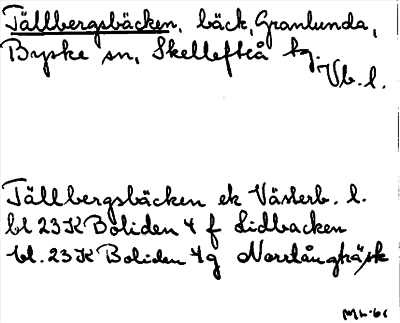 Tällbergsbäcken, bäck, Granlunda,
Byske sn, Skellefteå tg.
Vb. l.
Tällbergsbäcken ek Västerb. l.
bl 23K Boliden 4 f Lidbacken
bl. 23K Boliden 4g Norrlångträsk